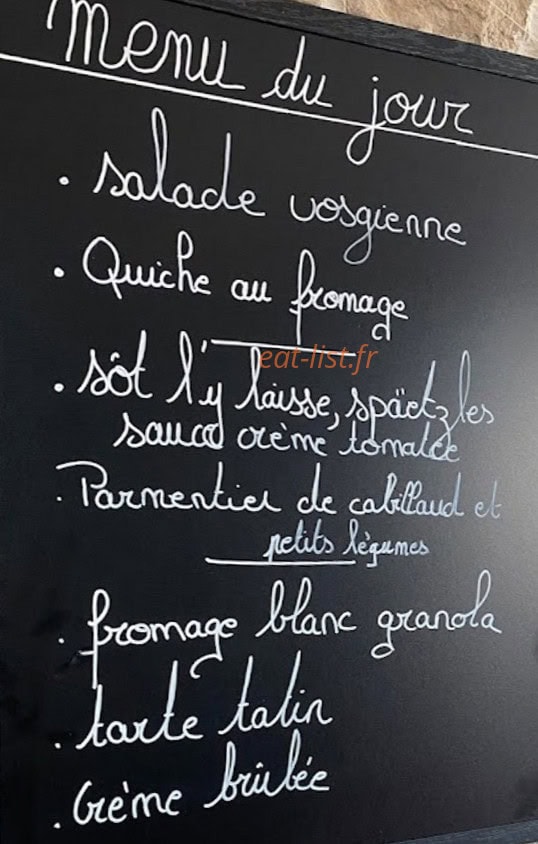 menu du jour
. salade vosgienne
. Quiche au fromage
eat-list.fr
. sôt l'y laisse, spaëtzles
sauce crème tomatée
. Parmentier de cabillaud et
petits légumes
. fromage blanc granola
. tarte tatin
. Crème brûlée